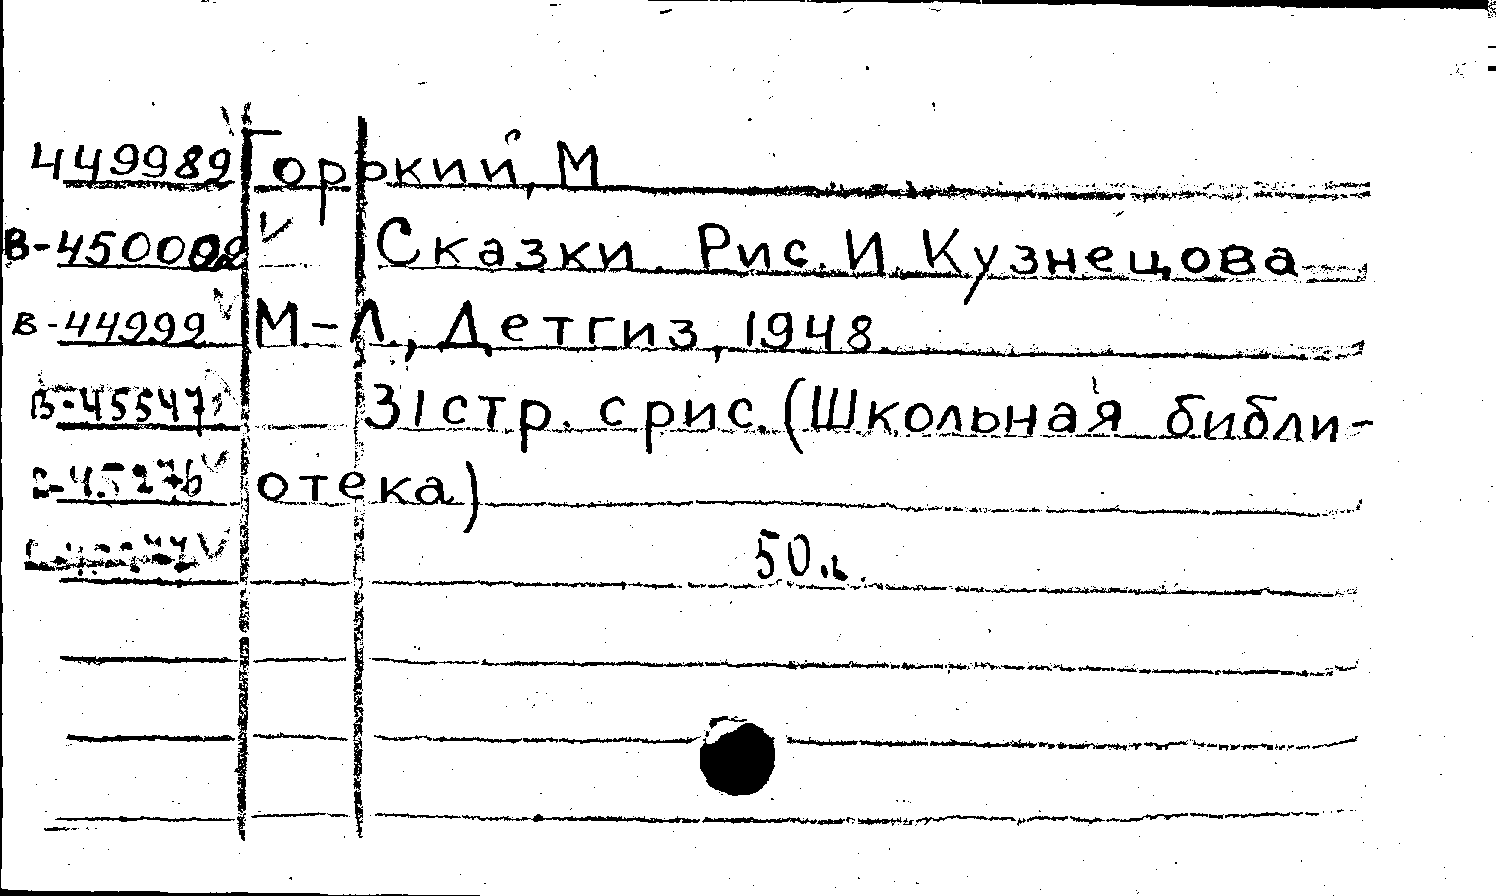 449989 Горький, М
В-450002 Сказки. Рис. И. Кузнецова
В-44999 М-Л., Детгиз, 1948.
В-45547 31 стр. с рис. (Школьная библи-
отека)
50 к.